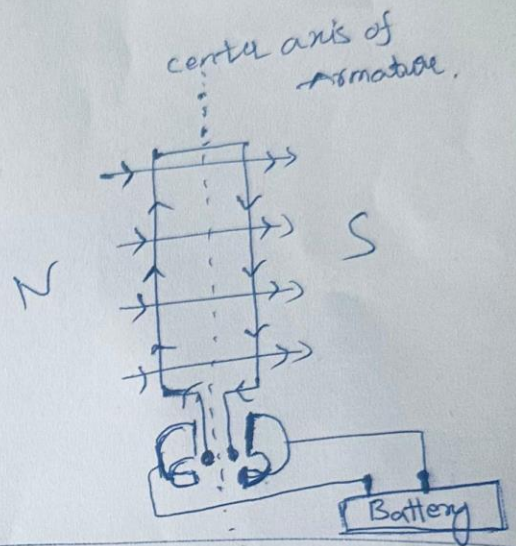 center axis of
Armature.
N
S
Battery